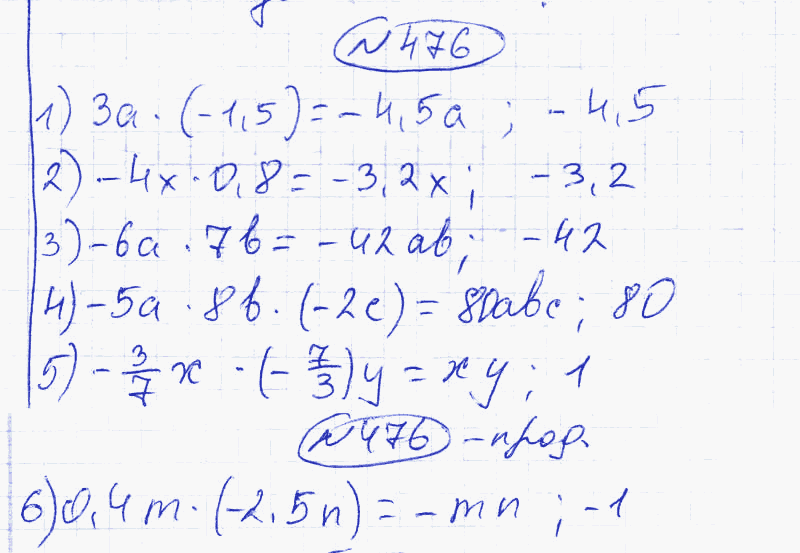 №476
1) 3a · (-1,5) = -4,5a ; -4,5
2) -4x · 0,8 = -3,2x ; -3,2
3) -6a · 7b = -42ab ; -42
4) -5a · 8b · (-2c) = 80abc ; 80
5) -3/7 x · (-7/3)y = xy ; 1
№476 -прод.
6) 0,4m · (-2,5n) = -mn ; -1